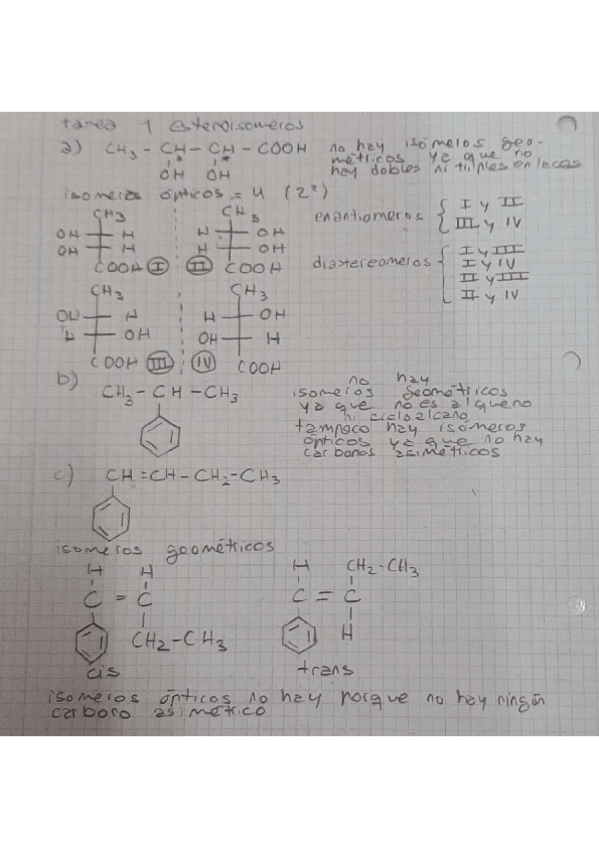 tarea 1 esteroisomeros
a) CH3 - CH - CH - COOH
* *
OH OH
no hay isómeros geo-
métricos ya que no
hay dobles ni triples enlaces
isomeros ópticos = 4 (2²)
CH3
OH H
OH H
COOH I
CH3
H OH
H OH
II COOH
enantiomeros { I y II
III y IV
diastereomeros { I y III
I y IV
II y III
II y IV
CH3
OH H
H OH
COOH III
CH3
H OH
OH H
IV COOH
b) CH3 - CH - CH3
no hay
isomeros geométricos
ya que no es alqueno
ni cicloalcano
tampoco hay isómeros
ópticos ya que no hay
carbonos asimétricos
c) CH = CH - CH2 - CH3
isomeros geométricos
H H
C = C
CH2 - CH3
cis
H CH2 - CH3
C = C
H
trans
isomeros ópticos no hay porque no hay ningún
carbono asimétrico